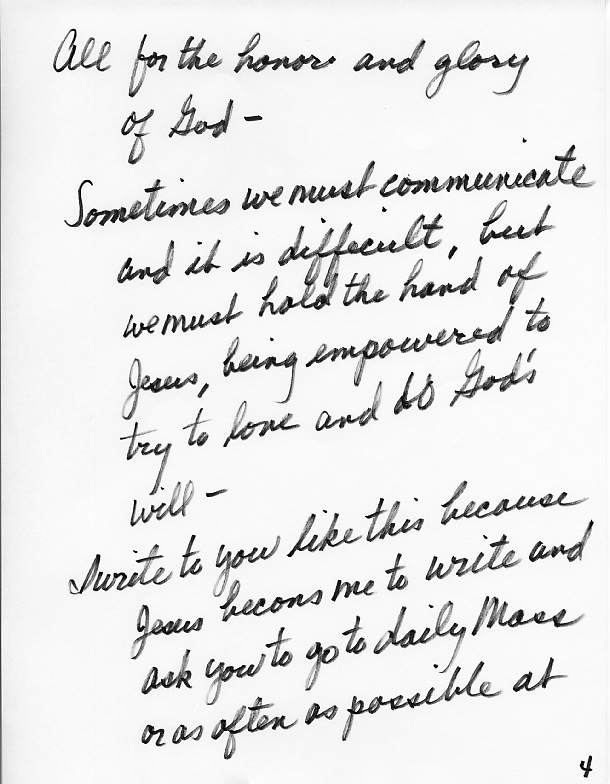 All for the honor and glory
of God -
Sometimes we must communicate
and it is difficult, but
we must hold the hand of
Jesus, being empowered to
try to love and do God's
will -
I write to you like this because
Jesus becons me to write and
ask you to go to daily Mass
or as often as possible at
4